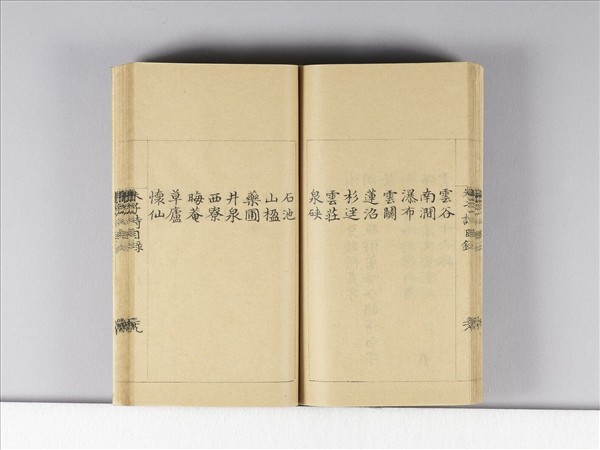 雲谷
南澗
瀑布
雲關
蓮沼
杉逕
雲莊
泉硤
石池
山楹
藥圃
井泉
西寮
晦菴
草廬
懷仙